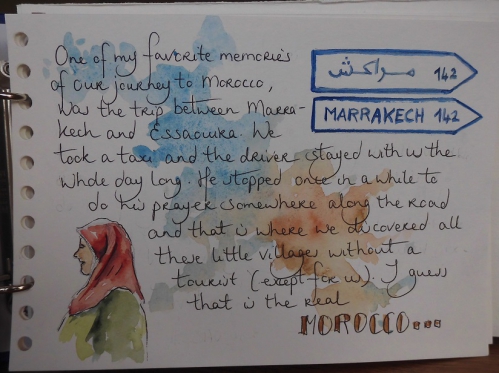 One of my favorite memories
of our journey to Morocco,
was the trip between Marra-
kech and Essaouira. We
took a taxi and the driver stayed with us the
whole day long. He stopped once in a while to
do his prayer somewhere along the road
and that is where we discovered all
these little villages without a
tourist (except for us). I guess
that is the real
MOROCCO...
مراكش 142
MARRAKECH 142